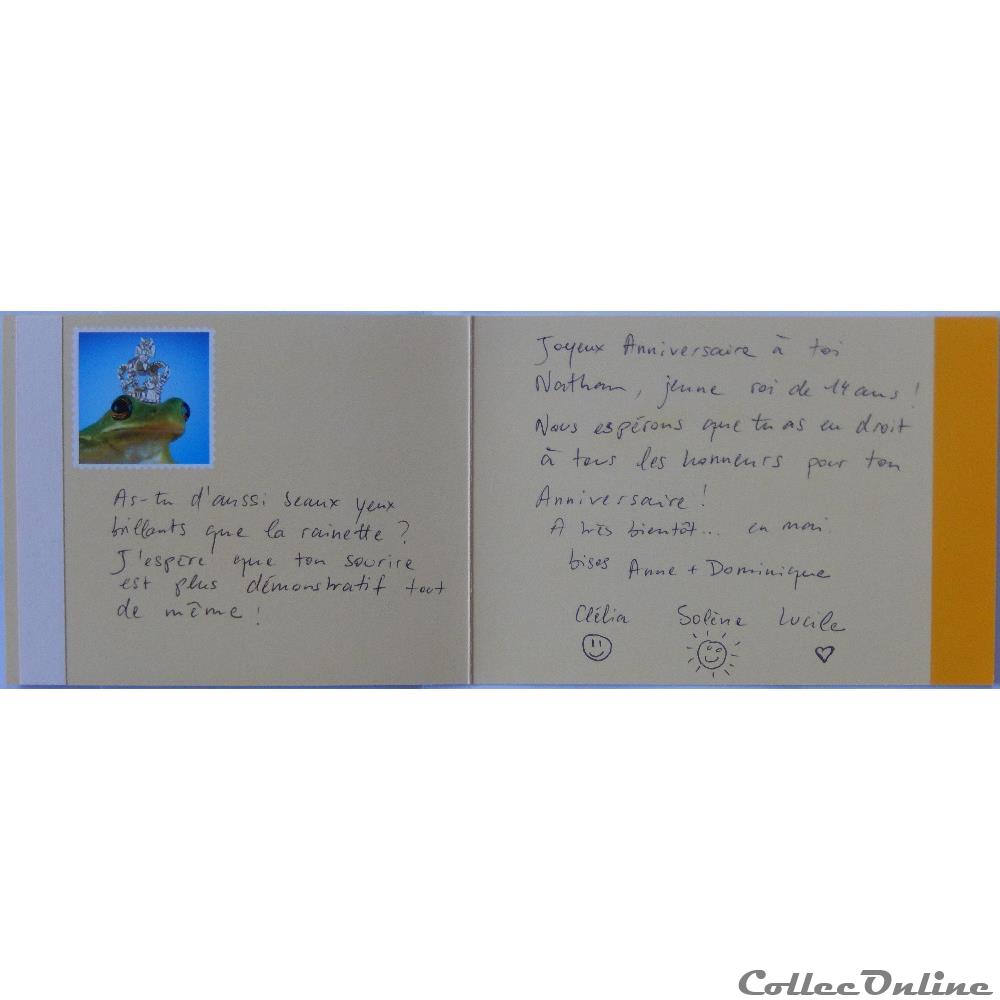 As-tu d'aussi beaux yeux
brillants que la rainette ?
J'espère que ton sourire
est plus démonstratif tout
de même !
Joyeux Anniversaire à toi
Nathan, jeune roi de 14 ans !
Nous espérons que tu as eu droit
à tous les honneurs pour ton
Anniversaire !
A très bientôt... en mai.
bises Anne + Dominique
Clélia Solène Lucile
CollecOnline